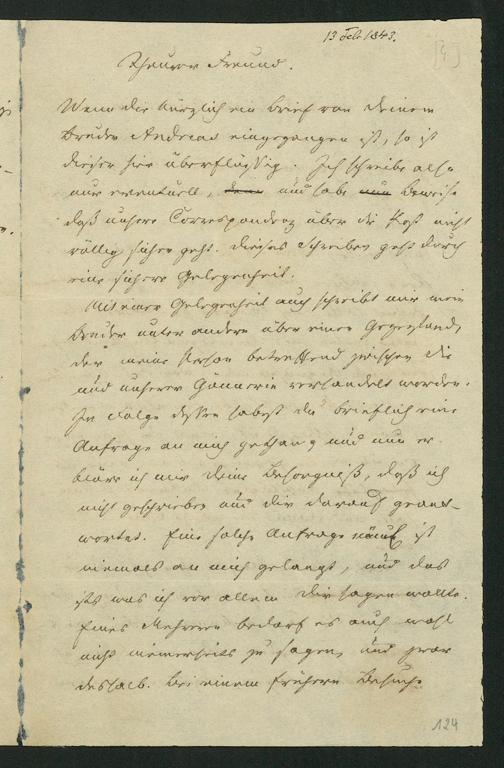 13 Feb 1843.
[4]
Theurer Freund.
Wenn dir kürzlich ein Brief von deinem
Bruder Andreas eingegangen ist, so ist
dieser hier überflüssig. Ich schreibe also
nur eventuell, und habe Beweise
daß unsere Correspondenz über die Post nicht
völlig sicher geht. Dieses Schreiben geht durch
eine sichere Gelegenheit.
Mit einer Gelegenheit auch schreibt mir mein
Bruder unter andern über einen Gegenstand,
der meine Person betreffend zwischen dir
und unserer Gönnerin verhandelt worden.
In Folge dessen habest du brieflich eine
Anfrage an mich gethan, und nun er-
kläre ich mir deine Besorgniß, daß ich
nicht geschrieben und dir darauf geant-
wortet. Eine solche Anfrage ist
niemals an mich gelangt, und das
ists was ich vor allem dir sagen wollte.
Eines Mehreren bedarf es auch wohl
nicht meinerseits zu sagen, und zwar
deshalb. Bei einem frühern Besuche
124